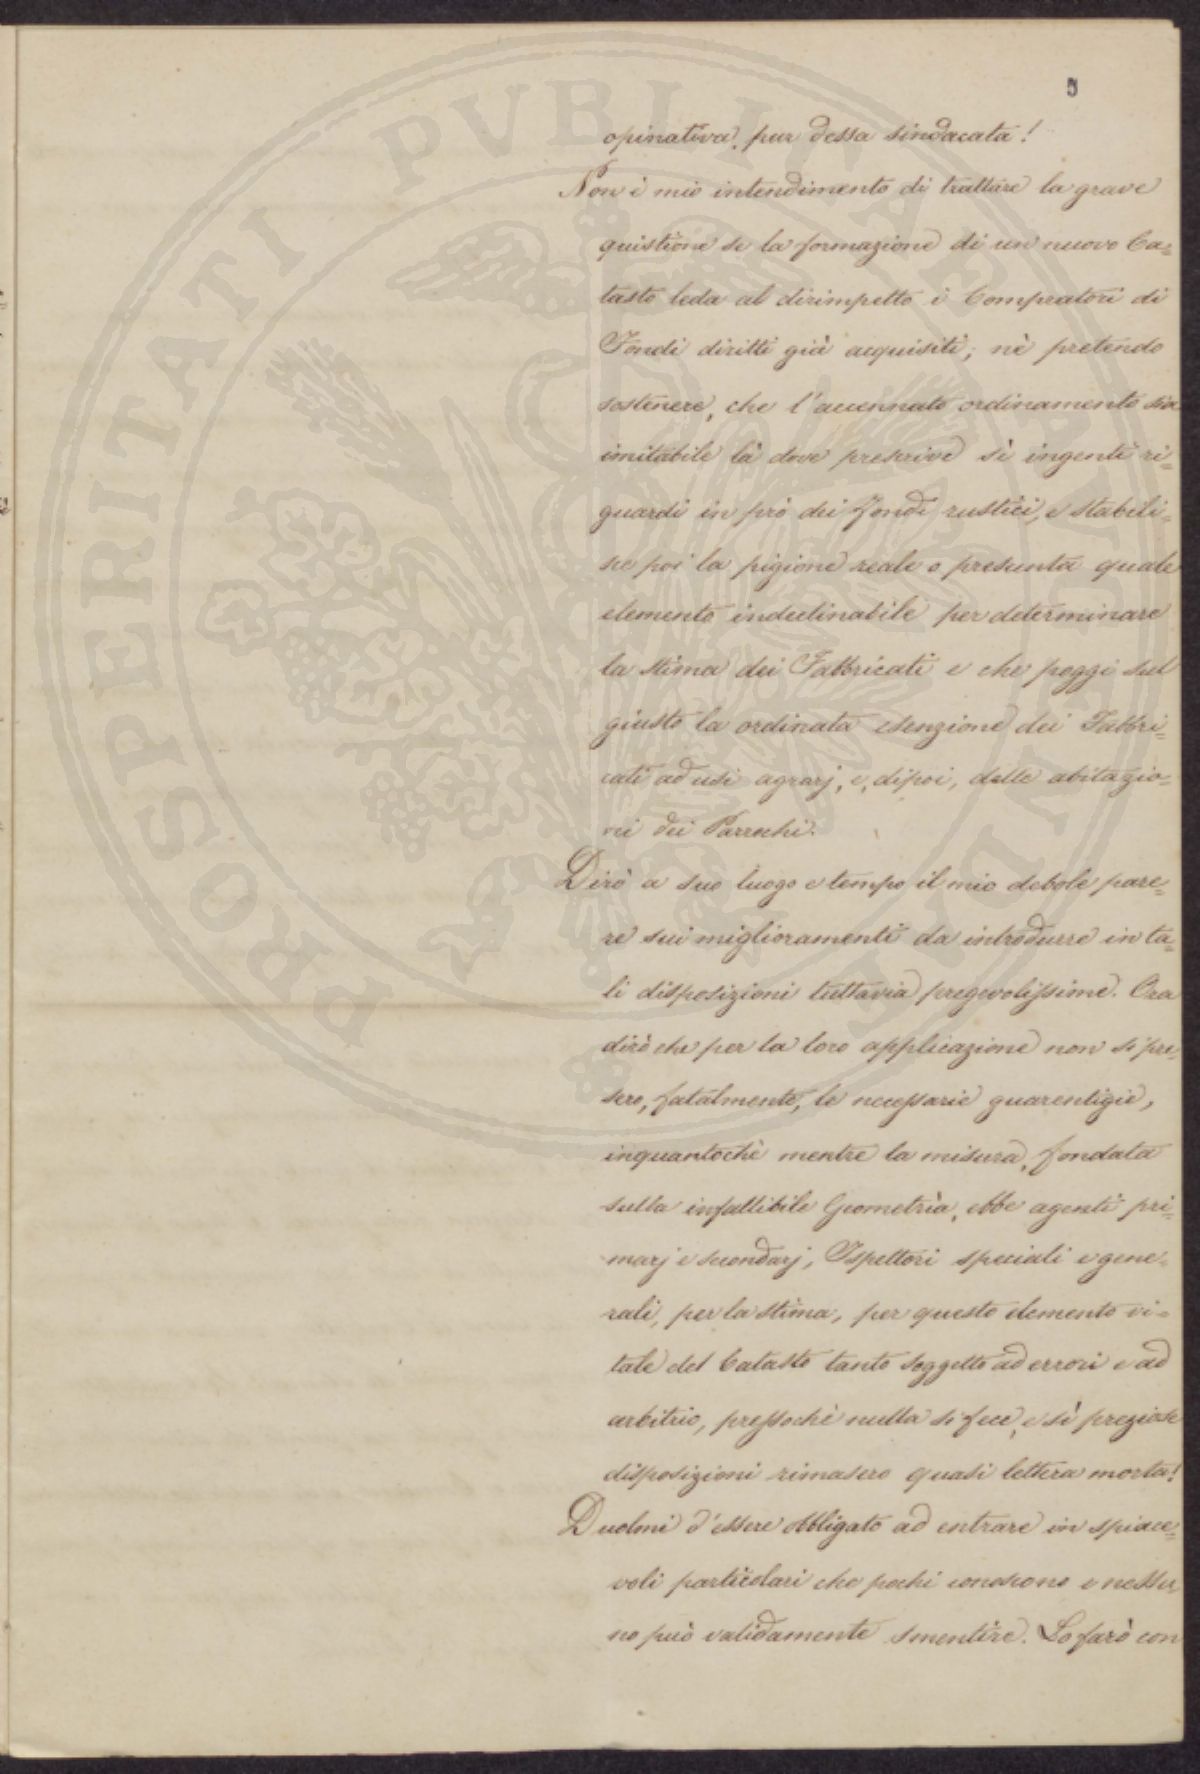 5
opinativa, pur dessa sindacata!
Non è mio intendimento di trattare la grave
quistione se la formazione di un nuovo Ca=
tasto leda al dirimpetto i Compratori di
Fondi diritti già acquisiti; nè pretendo
sostenere, che l'accennato ordinamento sia
imitabile là dove prescrive sì ingenti ri=
guardi in prò dei fondi rustici, e stabili=
sce poi la pigione reale o presunta quale
elemento indeclinabile per determinare
la stima dei Fabbricati e che poggi sul
giusto la ordinata esenzione dei Fabbri=
cati ad usi agrarj, e, dipoi, delle abitazio=
ni dei Parrochi.
Dirò a suo luogo e tempo il mio debole pare=
re sui miglioramenti da introdurre in ta=
li disposizioni tuttavia pregevolissime. Ora
dirò che per la loro applicazione non si pre=
sero, fatalmente, le necessarie guarentigie,
inquantochè mentre la misura, fondata
sulla infallibile Geometria, ebbe agenti pri=
marj e secondarj, Ispettori speciali e gene=
rali, per la stima, per questo elemento vi=
tale del Catasto tanto soggetto ad errori e ad
arbitrio, pressochè nulla si fece, e sì preziose
disposizioni rimasero quasi lettera morta!
Duolmi d'essere obbligato ad entrare in spiace=
voli particolari che pochi conoscono e nessu
no può validamente smentire. Lo farò con
PROSPERITATI PVBLICAE